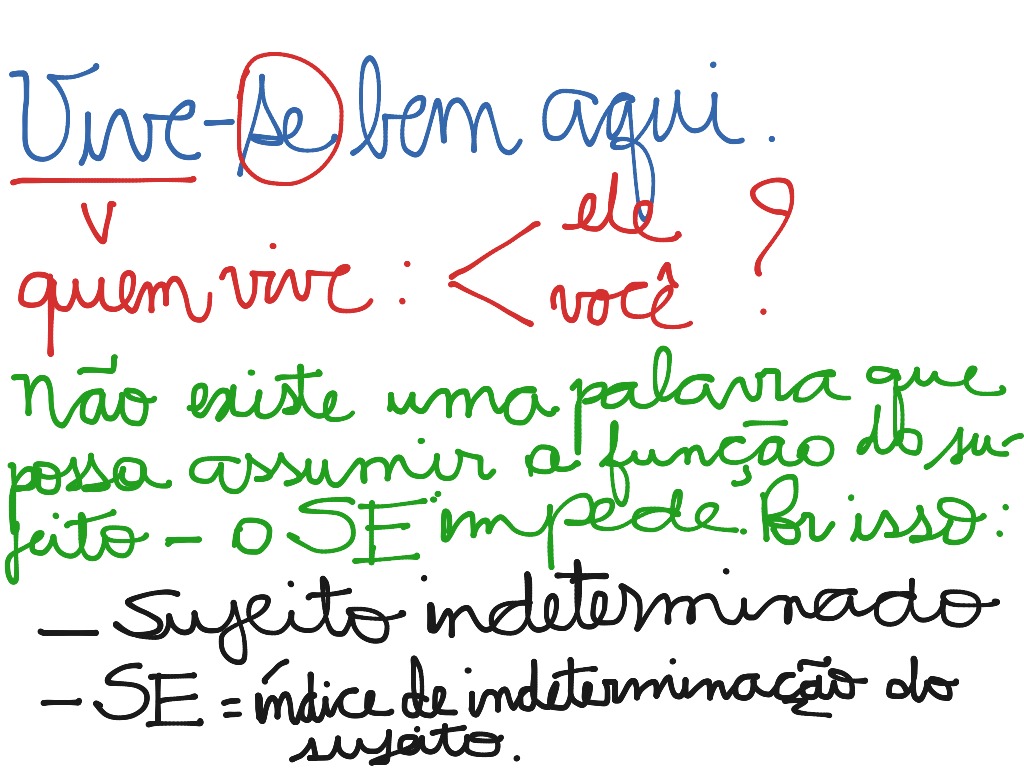 Vive-se bem aqui.
quem vive: < ele
você ?
Não existe uma palavra que
possa assumir a função do su
jeito - o SE impede. Por isso:
- Sujeito indeterminado
- SE = índice de indeterminação do
sujeito.